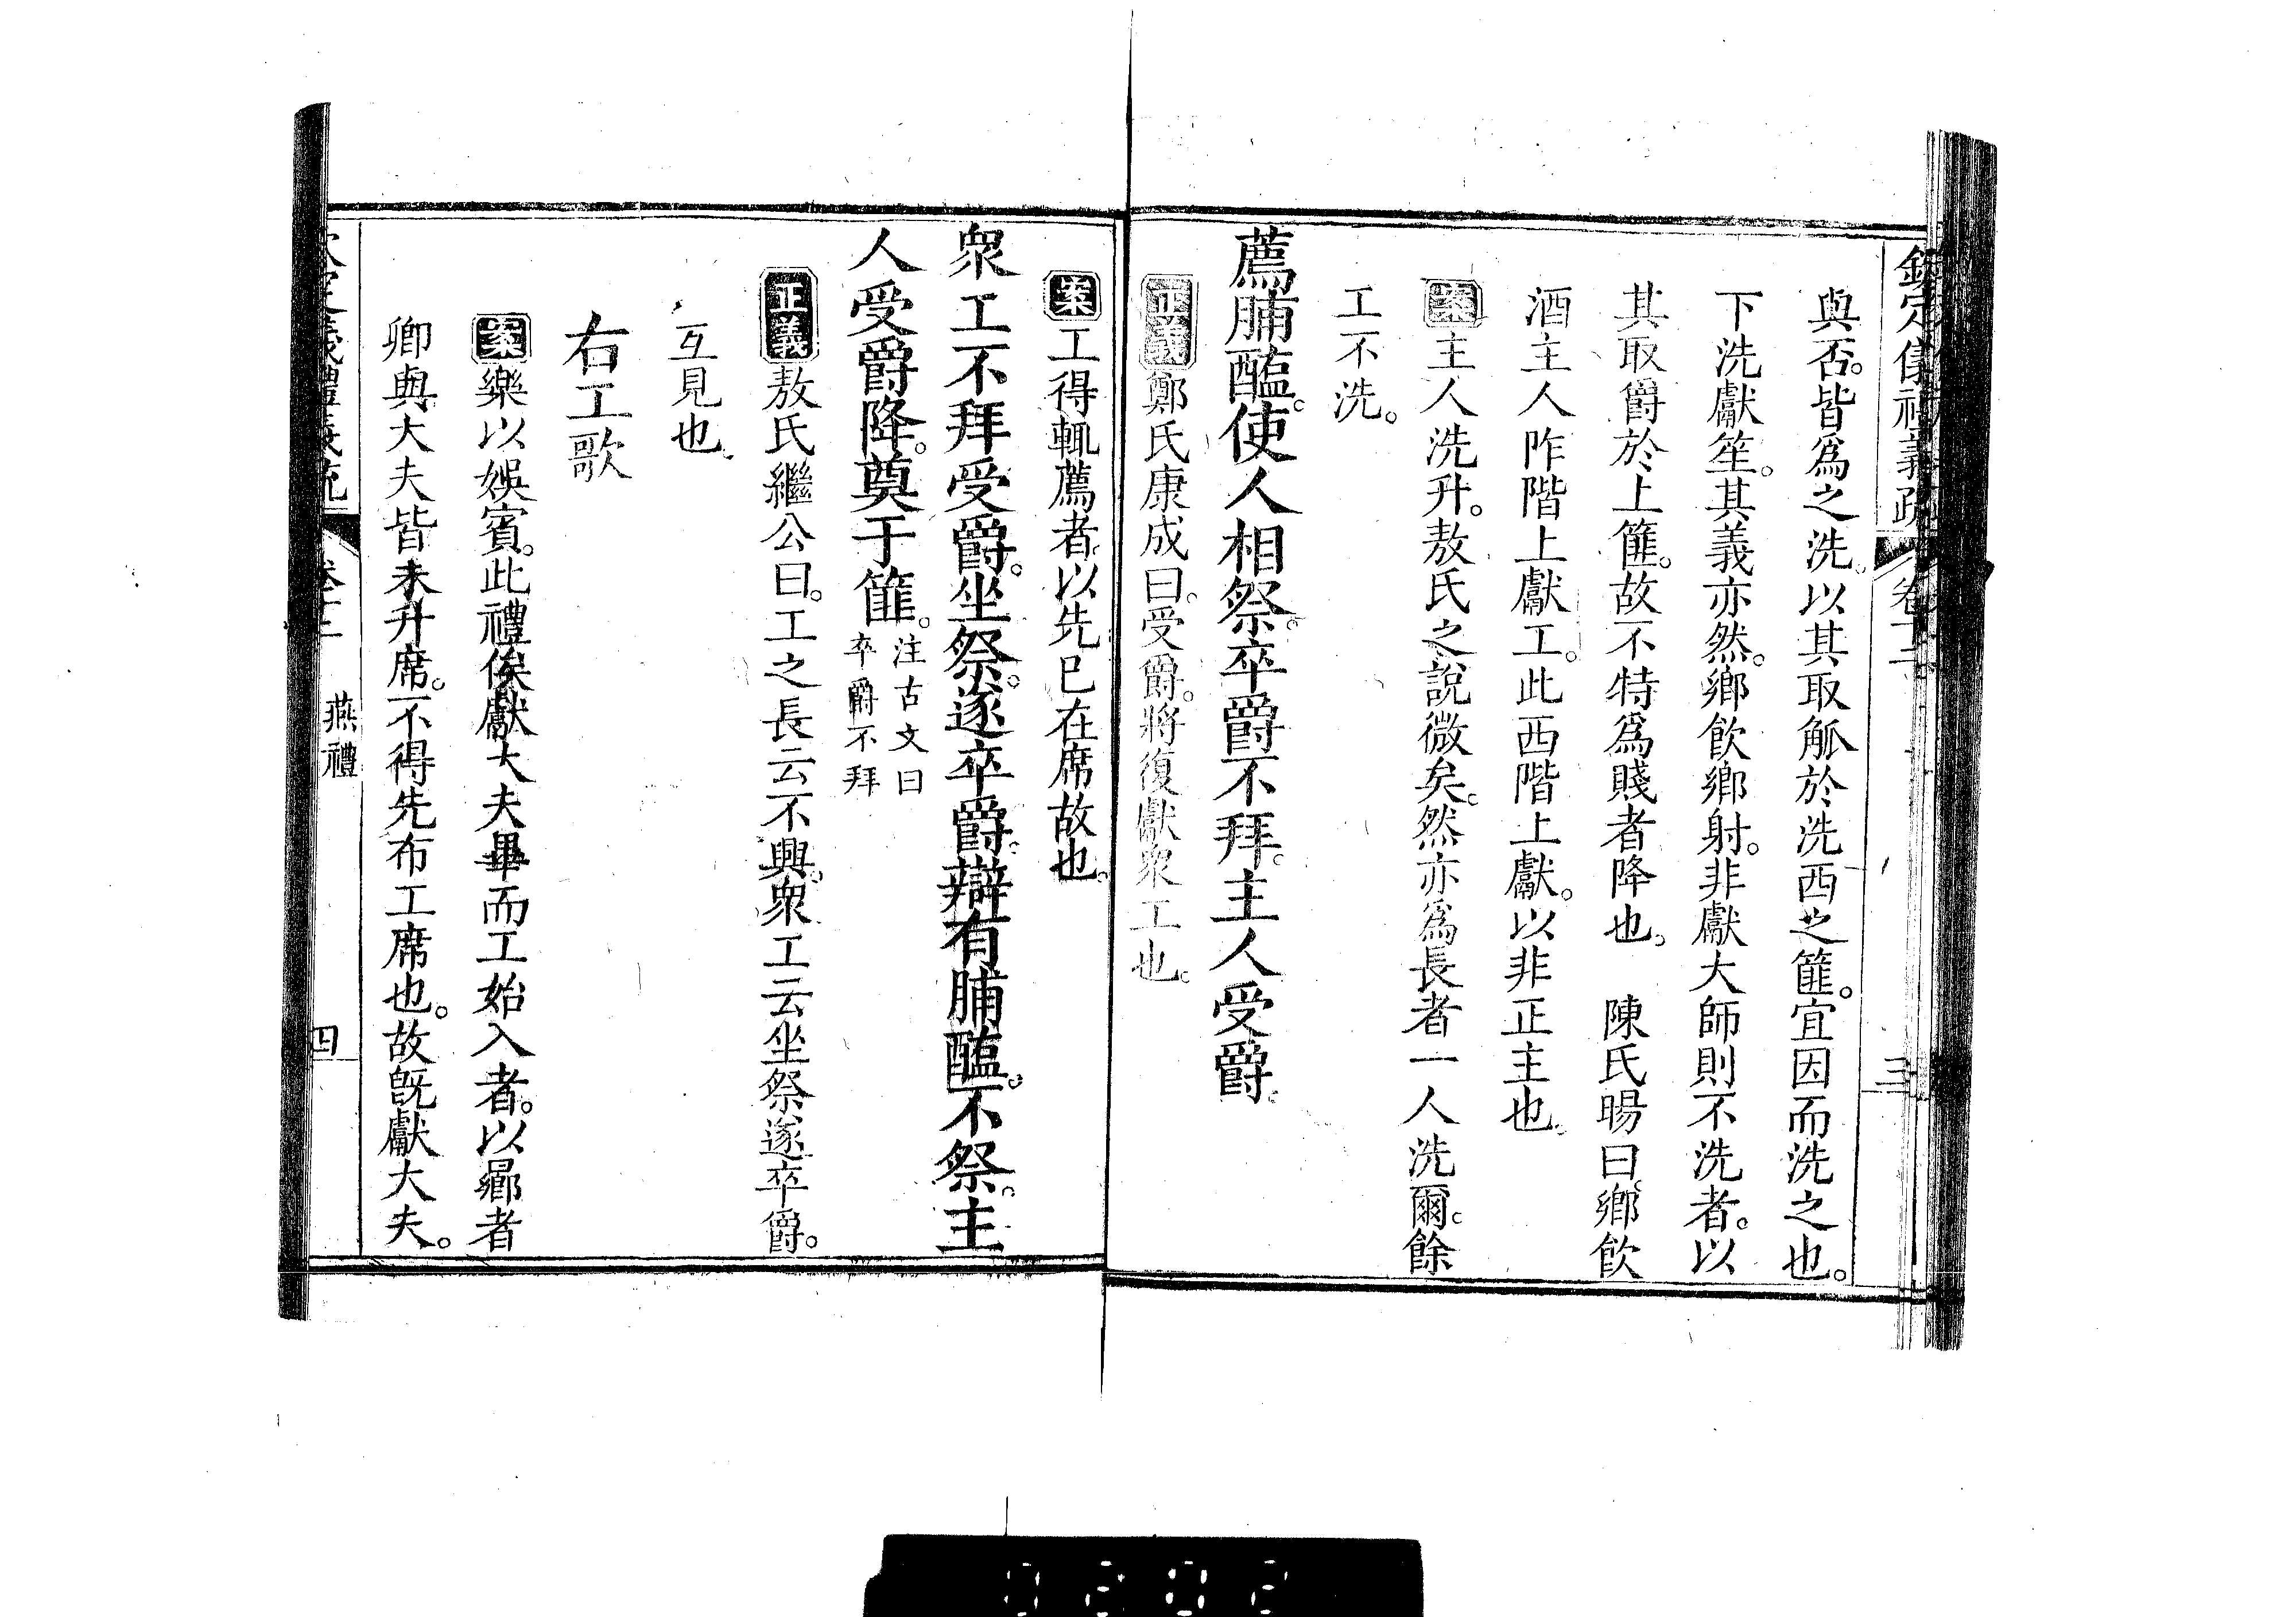 欽定儀禮義疏 卷十二 三
與否。皆爲之洗。以其取觚於洗西之篚。宜因而洗之也。
下洗獻笙。其義亦然。鄉飲鄉射。非獻大師則不洗者。以
其取爵於上篚。故不特爲賤者降也。 陳氏暘曰。鄉飲
酒主人阼階上獻工。此西階上獻。以非正主也。
案主人洗升。敖氏之說微矣。然亦爲長者一人洗爾。餘
工不洗。
薦脯醢。使人相祭。卒爵不拜。主人受爵。
正義鄭氏康成曰。受爵。將復獻衆工也。
案工得輒薦者。以先已在席故也。
衆工不拜受爵。坐祭。遂卒爵。辯有脯醢。不祭。主
人受爵降。奠于篚。注古文曰卒爵不拜
正義敖氏繼公曰。工之長云不興。衆工云坐祭遂卒爵。
互見也。
右工歌
案樂以娛賓。此禮俟獻大夫畢而工始入者。以曏者
卿與大夫皆未升席。不得先布工席也。故旣獻大夫。
欽定儀禮義疏 卷十二 燕禮 四
0202